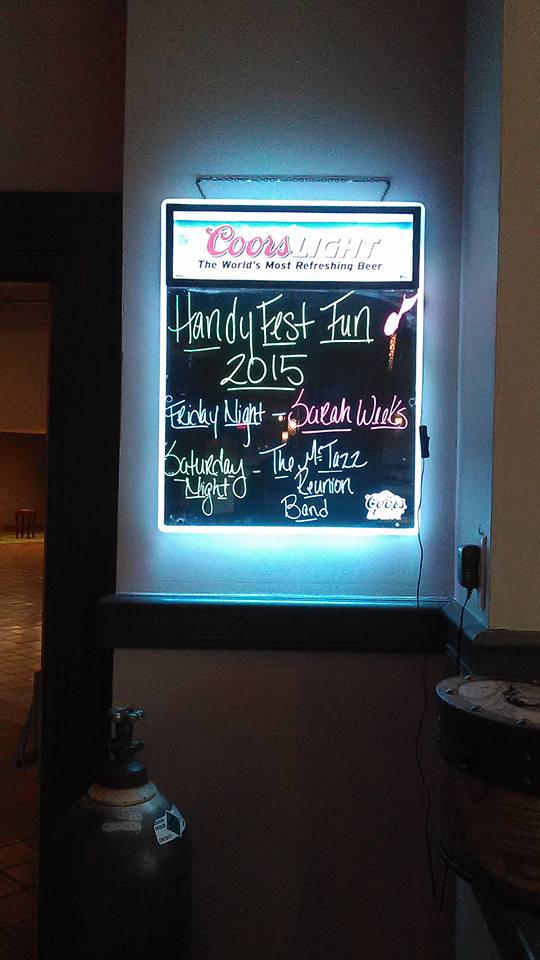 Coors LIGHT
The World's Most Refreshing Beer
Handy Fest Fun
2015
Friday Night - Sarah Weeks
Saturday - The McJazz
Night Reunion
Band
Coors